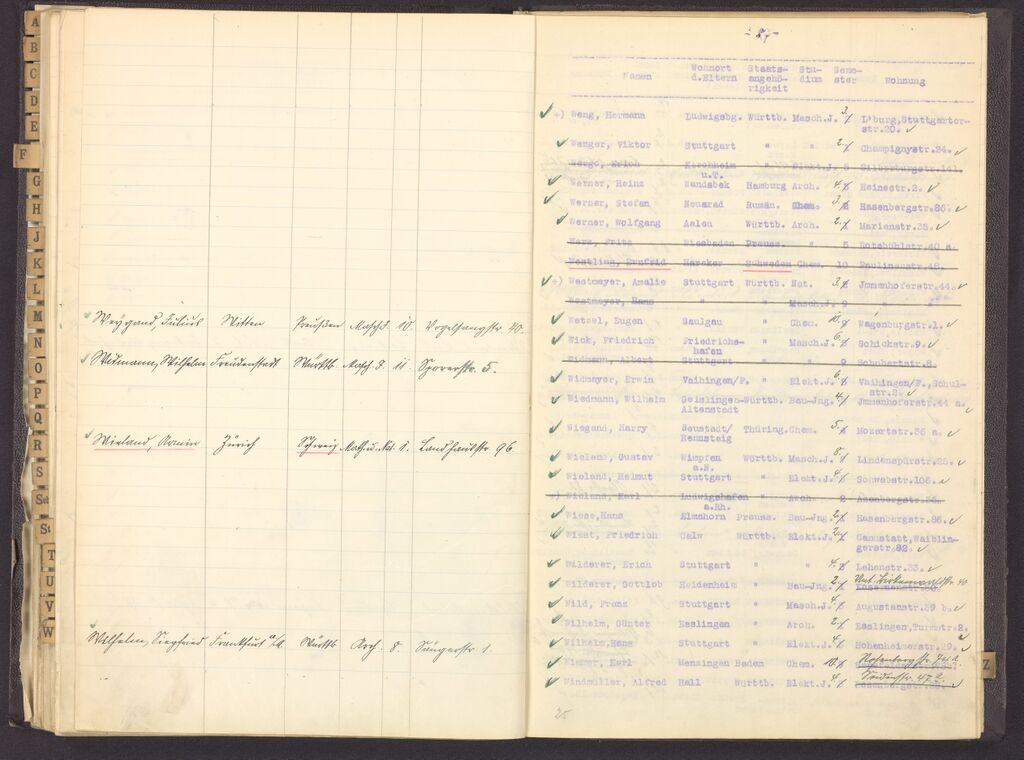 A
B
C
D
E
F
G
H
J
K
L
M
N
O
P
Q
R
S
Sch
St
T
U
V
W
Weygand, Julius Witten Preußen Masch.J. 10. Vogelsangstr 40.
Widmann, Wilhelm Freudenstadt Württb. Masch.J. 11. Sporerstr. 5.
Wieland, Armin Zürich Schweiz Math.u.Nat. 8. Landhausstr 96
Wilhelm, Siegfried Frankfurt a.M. Württb. Arch. 8. Sängerstr 1.
Namen Wohnort d.Eltern Staats-angehö-rigkeit Stu-dium Seme-ster Wohnung
+) Weng, Hermann Ludwigsbg. Württb. Masch.J. 3 L'burg,Stuttgarter-
str.20.
Wenger, Viktor Stuttgart " " 2 Champignystr.24.
Wergo, Erich Kirchheim " Elekt.J. 5 Silberburgstr.141.
u.T.
Werner, Heinz Wandsbek Hamburg Arch. 4 Heinestr.2.
Werner, Stefan Neuarad Rumän. Chem. 3 Hasenbergstr.86.
Werner, Wolfgang Aalen Württb. Arch. 2 Marienstr.35.
Werz, Fritz Wiesbaden Preuss. " 5 Rotebühlstr.40 a.
Westling, Ernfrid Harcker Schweden Chem. 10 Paulinenstr.48.
+) Westmeyer, Amalie Stuttgart Württb. Nat. 3 Immenhoferstr.44.
Westmeyer, Hans " " Masch.J. 9 "
Wetzel, Eugen Saulgau " Chem. 10. Wagenburgstr.1.
Wick, Friedrich Friedrichs- " Masch.J. 6. Schickstr.9.
hafen
Widmann, Albert Stuttgart " " 9 Schubartstr.8.
Widmayer, Erwin Vaihingen/F. " Elekt.J. 6. Vaihingen/F.,Schul-
str.2.
Wiedmann, Wilhelm Geislingen-Württb. Bau-Jng. 4. Immenhoferstr.44 a.
Altenstadt
Wiegand, Harry Neustadt/ Thüring.Chem. 5. Mozartstr.36 a.
Rennsteig
Wieland, Gustav Wimpfen Württb. Masch.J. 8. Lindenspürstr.28.
a.N.
Wieland, Helmut Stuttgart " Elekt.J. 4. Schwabstr.106.
+) Wieland, Karl Ludwigshafen " Arch. 2 Asenbergstr.36.
a.Rh.
Wiese,Hans Elmshorn Preuss. Bau-Jng. 2. Hasenbergstr.85.
Wiest, Friedrich Calw Württb. Elekt.J. 2. Cannstatt,Waiblin-
gerstr.82.
Wilderer, Erich Stuttgart " " 4. Lehenstr.33.
Wilderer, Gottlob Heidenheim " Bau-Jng. 2. Unt. Birkenwaldstr 40
Wild, Franz Stuttgart " Masch.J. 4. Augustenstr.39 b.
Wilhelm, Günter Esslingen " Arch. 2. Esslingen,Turmstr.2.
Wilhelm,Hans Stuttgart " Elekt.J. 4. Hohenheimerstr.29.
Wimmer, Karl Menzingen Baden Chem. 10. Rosenbergstr 94 a.
Windmüller, Alfred Hall Württb. Elekt.J. 4. Seidenstr. 47
Z
25